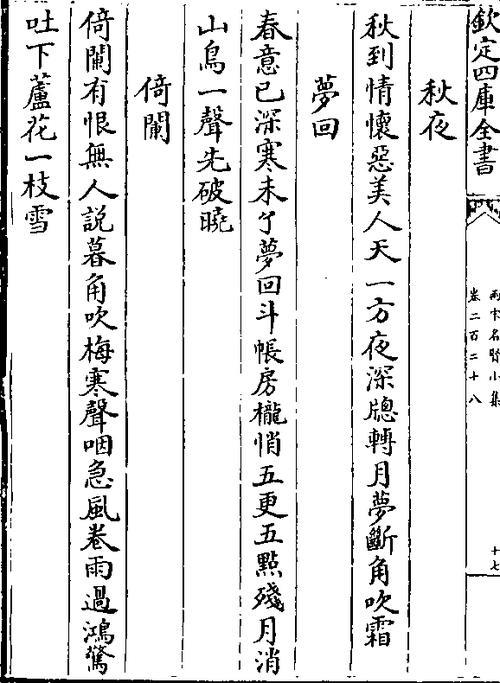 欽定四庫全書
兩宋名賢小集
卷二百二十八
十七
秋夜
秋到情懷惡美人天一方夜深牕轉月夢斷角吹霜
夢回
春意已深寒未了夢回斗帳房櫳悄五更五點殘月消
山鳥一聲先破曉
倚闌
倚闌有恨無人說暮角吹梅寒聲咽急風卷雨過鴻驚
吐下蘆花一枝雪